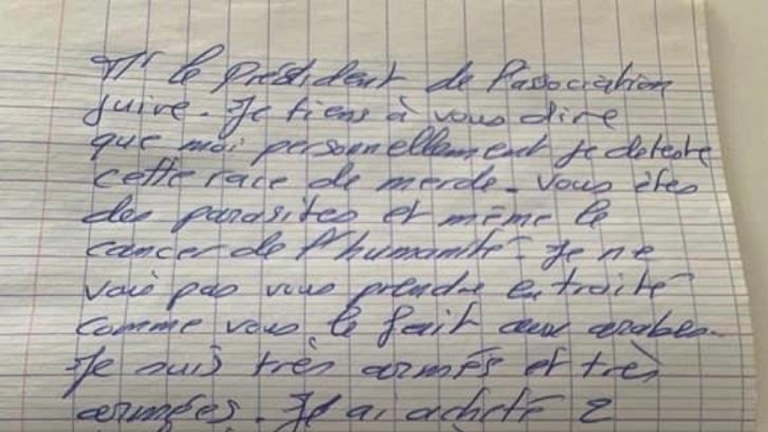 Mr le Président de l'association
juive. Je tiens à vous dire
que moi personnellement je deteste
cette race de merde. Vous êtes
des parasites et même le
cancer de l'humanité. Je ne
vais pas vous prendre en traité
comme vous le fait aux arabes.
Je suis très armés et très
armées. Je ai acheté 2